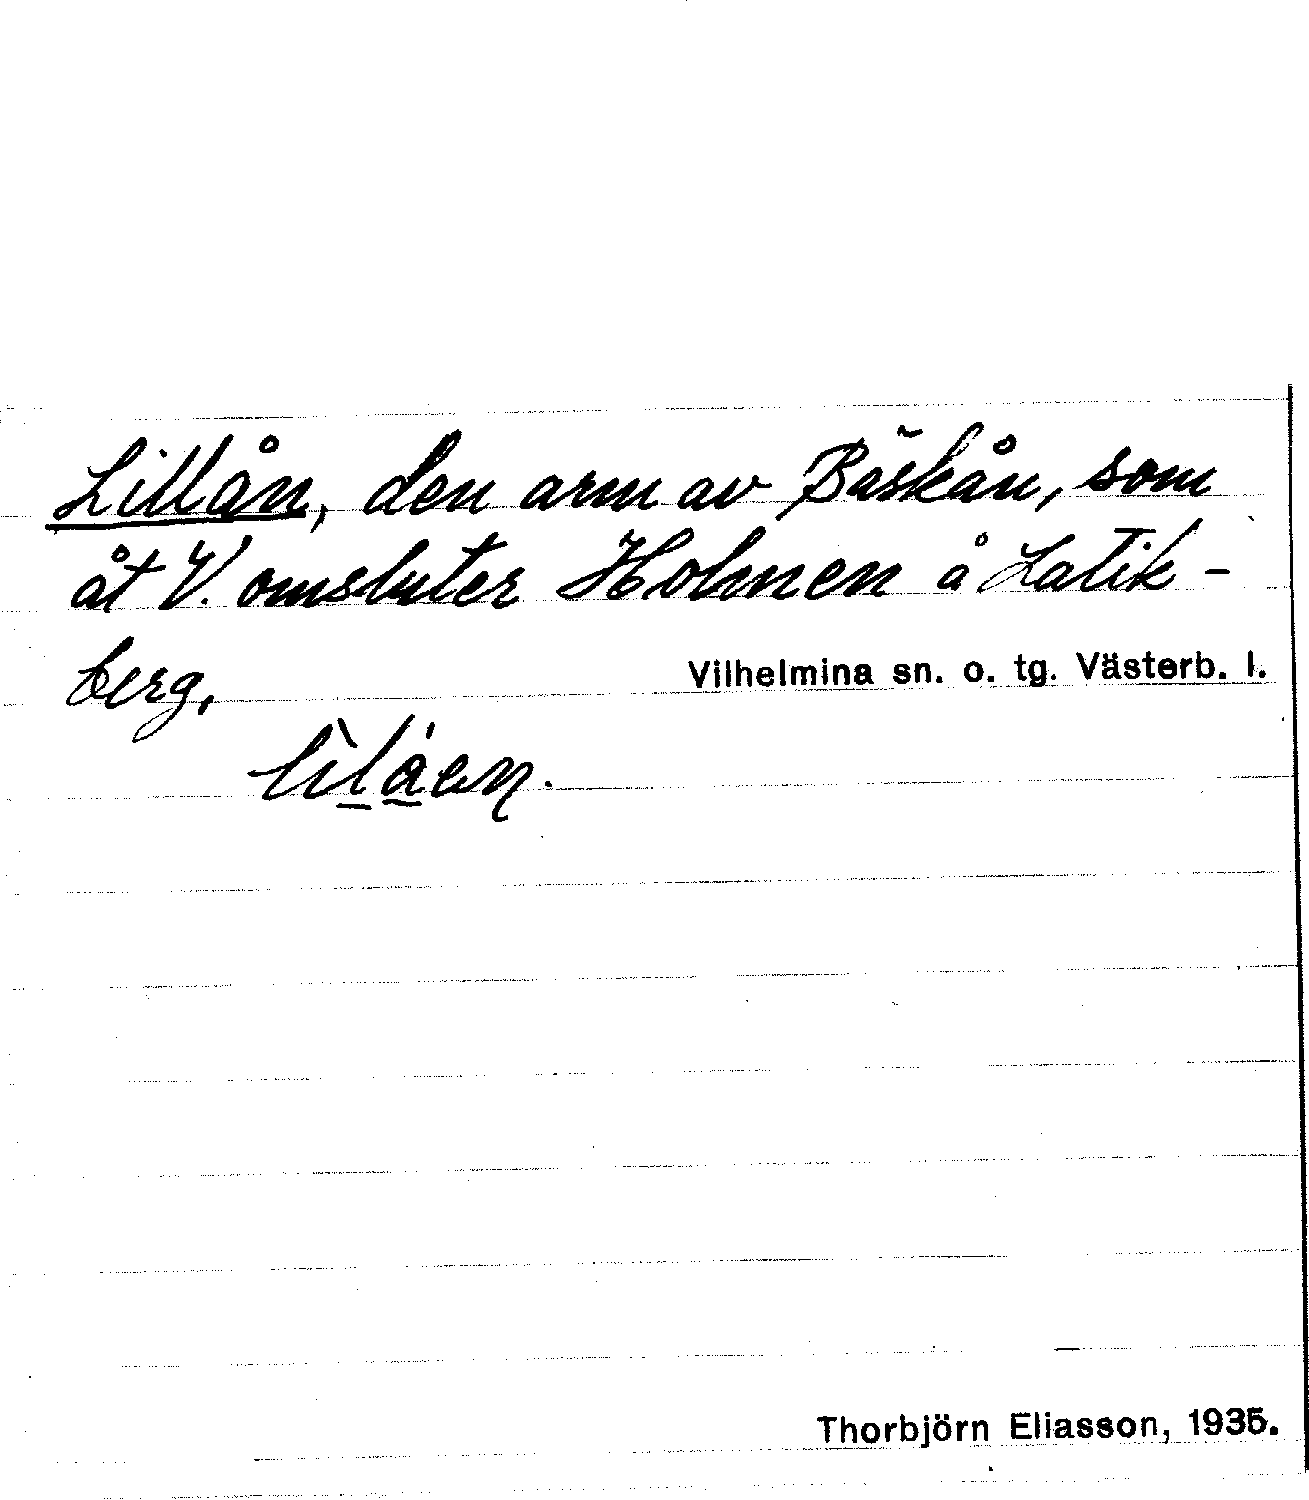 Lillån, den arm av Bäskån, som
åt V. omsluter Holmen å Latik-
berg,
Vilhelmina sn. o. tg. Västerb. l.
Thorbjörn Eliasson, 1935.